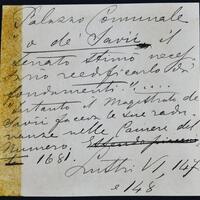 Palazzo Comunale
o de' Savii, il
Senato stimò neces
sario reedificarlo dai
fondamenti"....
Intanto il Magistrato de
Savii faceva le sue radu
nanze nelle Camere del
Numero,
1681.
Lustri VI, 147
e 148